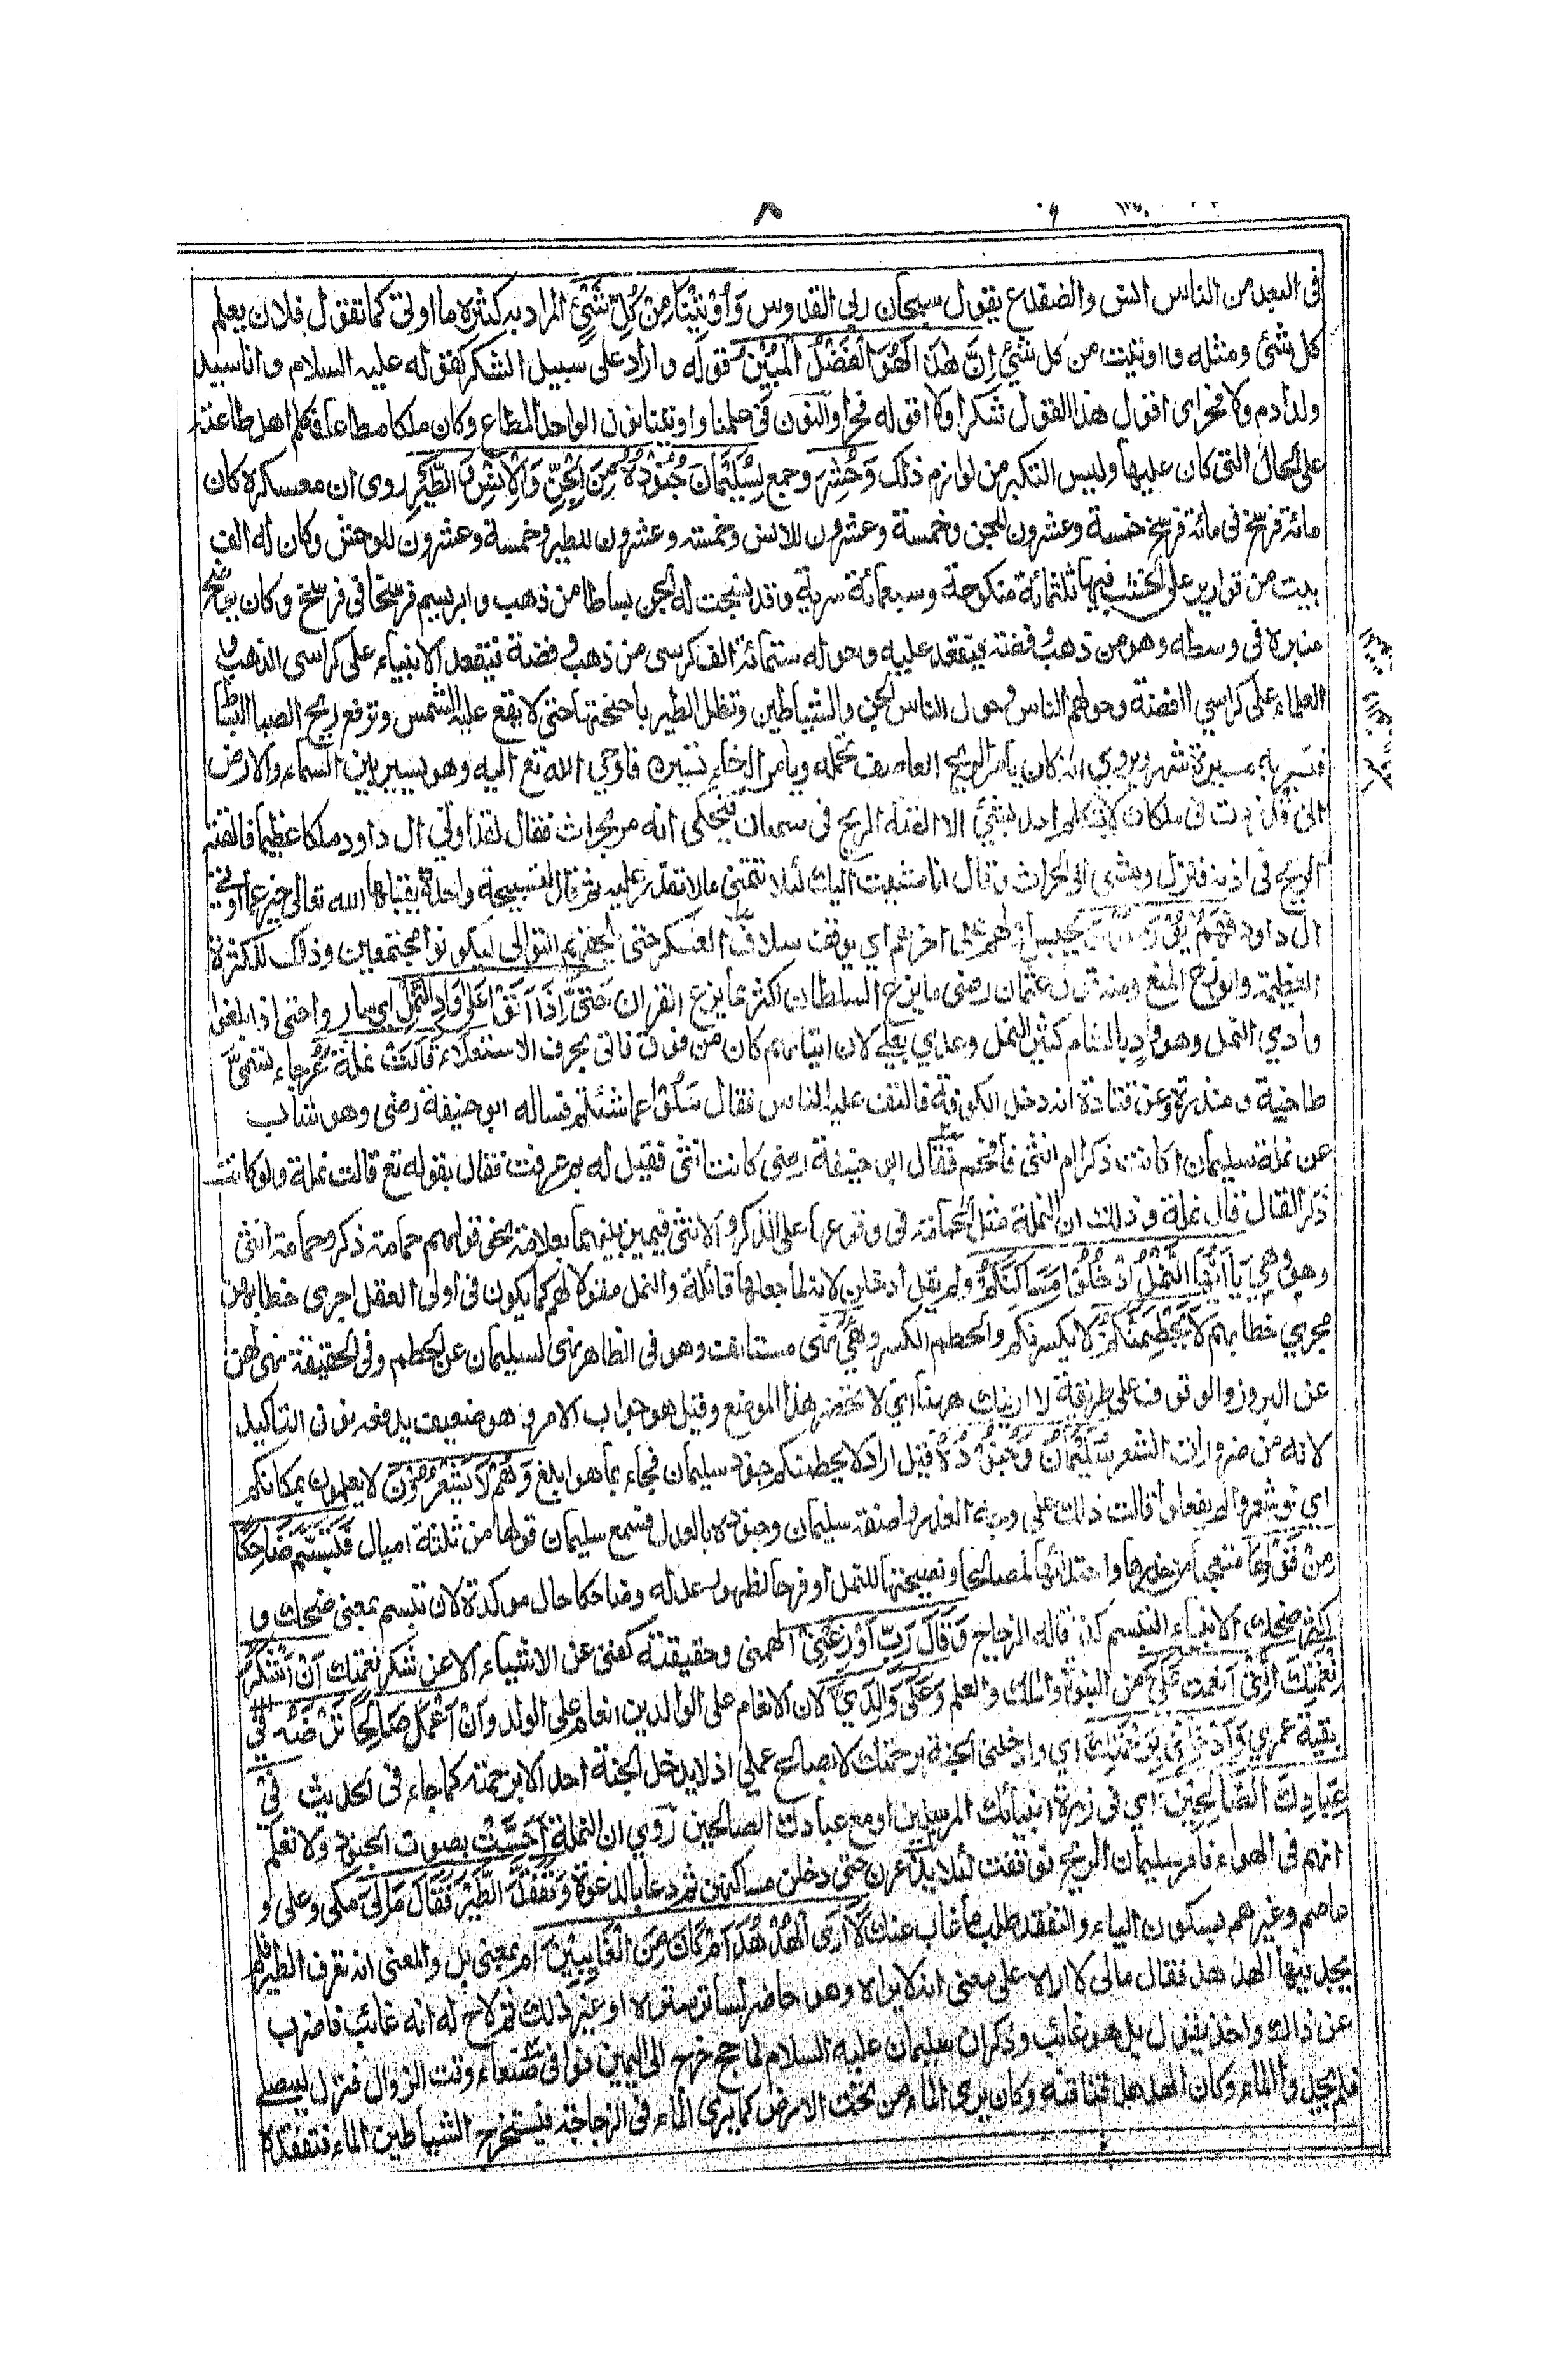 فى البعد من الناس انس والضفدع يقول سبحان ربى القدوس وَاُوْتِيْنَا مِنْ كُلِّ شَيْئٍ المراد به كثرة ما اوتى كما تقول فلان يعلم
كل شئ ومثله واوتيت من كل شئ اِنَّ هٰذَا لَهُوَ الْفَضْلُ الْمُبِيْنُ قوله وارد على سبيل الشكر كقوله عليه السلام وانا سيد
ولد ادم ولا فخر اى اقول هذا القول شكرا ولا اقوله فخرا والنون فى علمنا واوتينا نون الواحد المطاع وكان ملكا مطاعا فكلم اهل طاعته
على الحال التى كان عليها وليس التكبر من لوازم ذلك وَحُشِرَ وجمع لِسُلَيْمَانَ جُنُوْدُهٗ مِنَ الْجِنِّ وَالْاِنْسِ وَالطَّيْرِ روى ان معسكره كان
مائة فرسخ فى مائة فرسخ خمسة وعشرون للجن وخمسة وعشرون للانس وخمسة وعشرون للطير وخمسة وعشرون للوحش وكان له الف
بيت من قوارير على الخشب فيها ثلثمائة منكوحة وسبعمائة سرية وقد نسجت له الجن بساطا من ذهب وابريسم فرسخا فى فرسخ وكان يوضع
منبره فى وسطه وهو من ذهب وفضة فيقعد عليه وحوله ستمائة الف كرسى من ذهب وفضة فيقعد الانبياء على كراسى الذهب و
العلماء على كراسى الفضة وحولهم الناس وحول الناس الجن والشياطين وتظل الطير باجنحتها حتى لا يقع عليه الشمس وترفع ريح الصبا البساط
فتسير به مسيرة شهر ويروى انه كان يامر الريح العاصف تحمله ويامر الرخاء تسيره فاوحى الله تع اليه وهو يسير بين السماء والارض
انى قد زدت فى ملكك لا يتكلم احد بشئ الا القته الريح فى سمعك فيحكى انه مر بحراث فقال لقد اوتى ال داود ملكا عظيما فالقته
الريح فى اذنه فنزل ومشى الى الحراث وقال انما مشيت اليك لئلا تتمنى مالا تقدر عليه ثم قال لتسبيحة واحدة يقبلها الله تعالى خير مما اوتى
ال داود فَهُمْ يُوْزَعُوْنَ يحبس اولهم على اخرهم اى يوقف سلاف العسكر حتى يلحقهم التوالى ليكونوا مجتمعين وذلك للكثرة
العظيمة والوزع المنع ومنه قول عثمان رضى ما يزع السلطان اكثر مما يزع القران حَتّٰى اِذَا اَتَوْا عَلٰى وَادِ النَّمْلِ اى ساروا حتى اذا بلغوا
وادى النمل وهو واد بالشام كثير النمل وعدى بعلى لان اتيانهم كان من فوق فاتى بحرف الاستعلاء قَالَتْ نَمْلَةٌ عرجاء تسمى
طاخية ومنذرة وعن قتادة انه دخل الكوفة فالتف عليه الناس فقال سَلُوا عما شئتم فساله ابو حنيفة رضى وهو شاب
عن نملة سليمان اكانت ذكرا ام انثى فافحم فقال ابو حنيفة رضى كانت انثى فقيل له بم عرفت فقال بقوله تع قالت نملة ولو كانت
ذكرا لقال قال نملة وذلك ان النملة مثل الحمامة فى وقوعها على الذكر والانثى فيميز بينهما بعلامة نحو قولهم حمامة ذكر وحمامة انثى
وهو وهى يَا اَيُّهَا النَّمْلُ ادْخُلُوْا مَسَاكِنَكُمْ ولم يقل ادخلن لانه لما جعلها قائلة والنمل مقولا لهم كما يكون فى اولى العقل اجرى خطابهن
مجرى خطابهم لَا يَحْطِمَنَّكُمْ لا يكسرنكم والحطم الكسر وهى نهى مستانف وهو فى الظاهر نهى لسليمان عن الحطم وفى الحقيقة نهى لهن
عن البروز والوقوف على طريقة لا ارينك ههنا اى لا تحضر هذا الموضع وقيل هو جواب الامر وهو ضعيف يدفعه نون التاكيد
لانه من ضرورات الشعر سُلَيْمَانُ وَجُنُوْدُهٗ قيل اراد لا يحطمنكم جنود سليمان فجاء بما هو ابلغ وَهُمْ لَا يَشْعُرُوْنَ لا يعلمون بمكانكم
اى لو شعروا لم يفعلوا قالت ذلك على وجه العذر واصفة سليمان وجنوده بالعدل فسمع سليمان قولها من ثلثة اميال فَتَبَسَّمَ ضَاحِكًا
مِنْ قَوْلِهَا متعجبا من حذرها واهتدائها لمصالحها ونصيحتها للنمل او فرحا لظهور عدله وضاحكا حال موكدة لان تبسم بمعنى ضحك و
اكثر ضحك الانبياء التبسم كذا قاله الزجاج وَقَالَ رَبِّ اَوْزِعْنِيْ الهمنى وحقيقته كفنى عن الاشياء الا عن شكر نعمتك اَنْ اَشْكُرَ
نِعْمَتَكَ الَّتِيْ اَنْعَمْتَ عَلَيَّ من النبوة والملك والعلم وَعَلٰى وَالِدَيَّ لان الانعام على الوالدين انعام على الولد وَاَنْ اَعْمَلَ صَالِحًا تَرْضٰىهُ فى
بقية عمرى وَاَدْخِلْنِيْ بِرَحْمَتِكَ اى وادخلنى الجنة برحمتك لا بصالح عملى اذ لا يدخل الجنة احد الا برحمته كما جاء فى الحديث فِيْ
عِبَادِكَ الصَّالِحِيْنَ اى فى زمرة انبيائك المرسلين او مع عبادك الصالحين روى ان النملة احست بصوت الجنود ولا تعلم
انهم فى الهواء فامر سليمان الريح فوقفت لئلا يذعرن حتى دخلن مساكنهن ثم دعا بالدعوة وَتَفَقَّدَ الطَّيْرَ فَقَالَ مَالِيَ مكى وعلى و
عاصم وغيرهم بسكون الياء والتفقد طلب ما غاب عنك لَا اَرَى الْهُدْهُدَ اَمْ كَانَ مِنَ الْغَائِبِيْنَ ام بمعنى بل والمعنى انه تعرف الطير فلم
يجد بينها الهدهد فقال مالى لا اراه على معنى انه لا يراه وهو حاضر لساتر ستره او غير ذلك ثم لاح له انه غائب فاضرب
عن ذلك واخذ يقول بل هو غائب وذكر ان سليمان عليه السلام لما حج خرج الى اليمن فوافى صنعاء وقت الزوال فنزل ليصلى
فلم يجدوا الماء وكان الهدهد قناقنه وكان يرى الماء من تحت الارض كما يرى الماء فى الزجاجة فيستخرج الشياطين الماء فتفقده